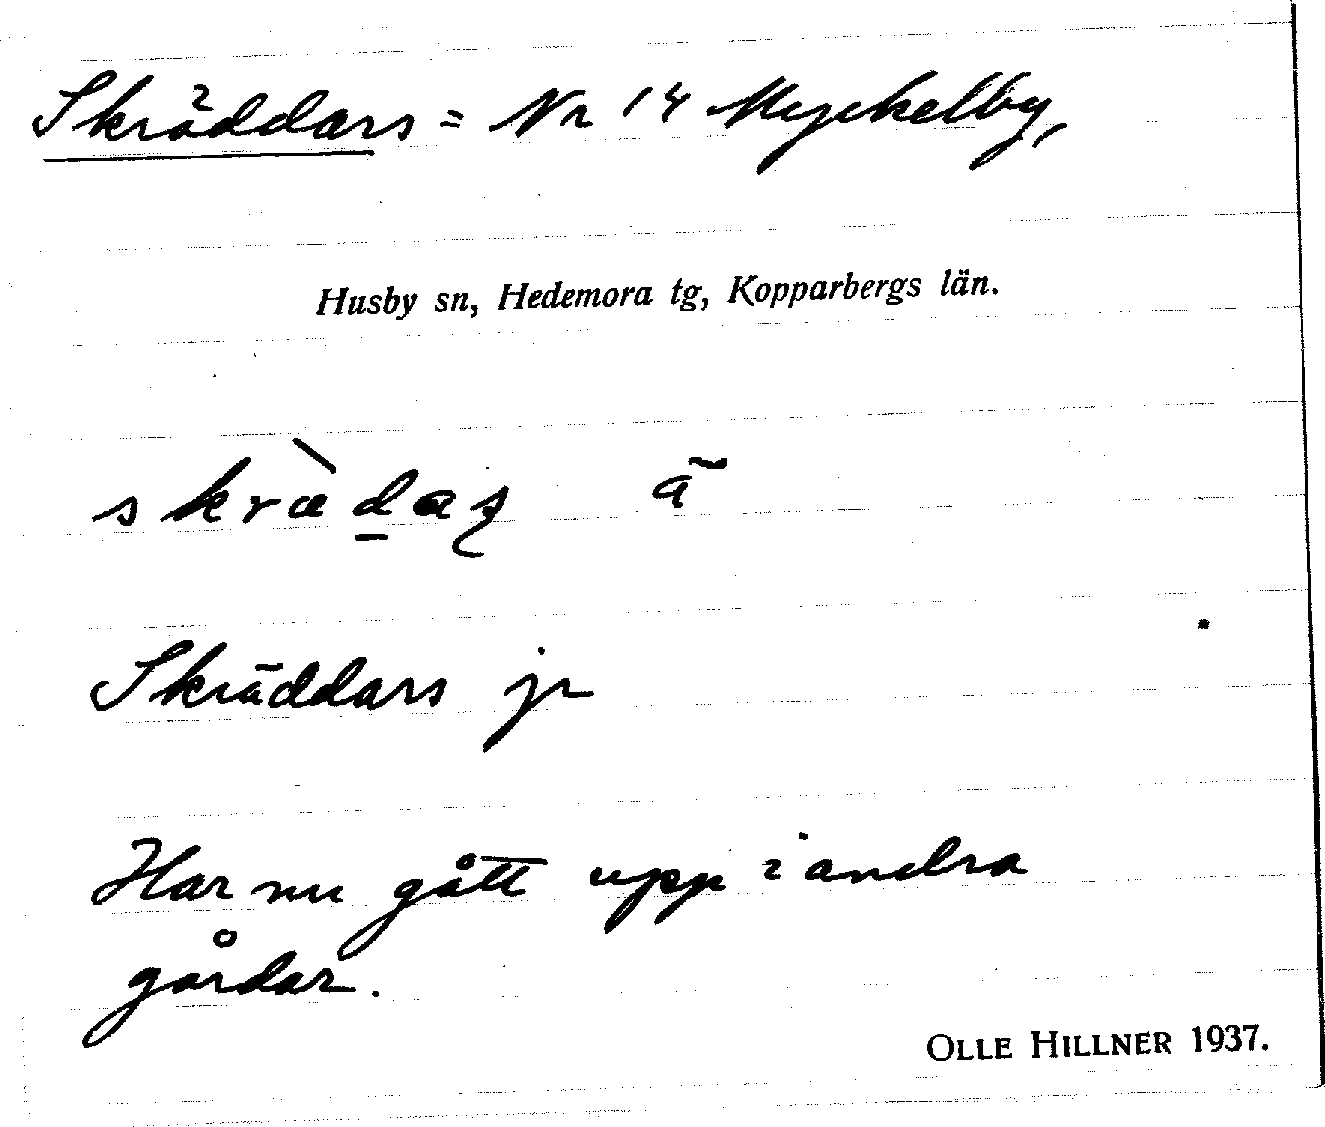 Skräddars = Nr 14 Myckelby,
Husby sn, Hedemora tg, Kopparbergs län.
skræ̀d̲aʂ ã
Skräddars jr
Har nu gått upp i andra
gårdar.
OLLE HILLNER 1937.